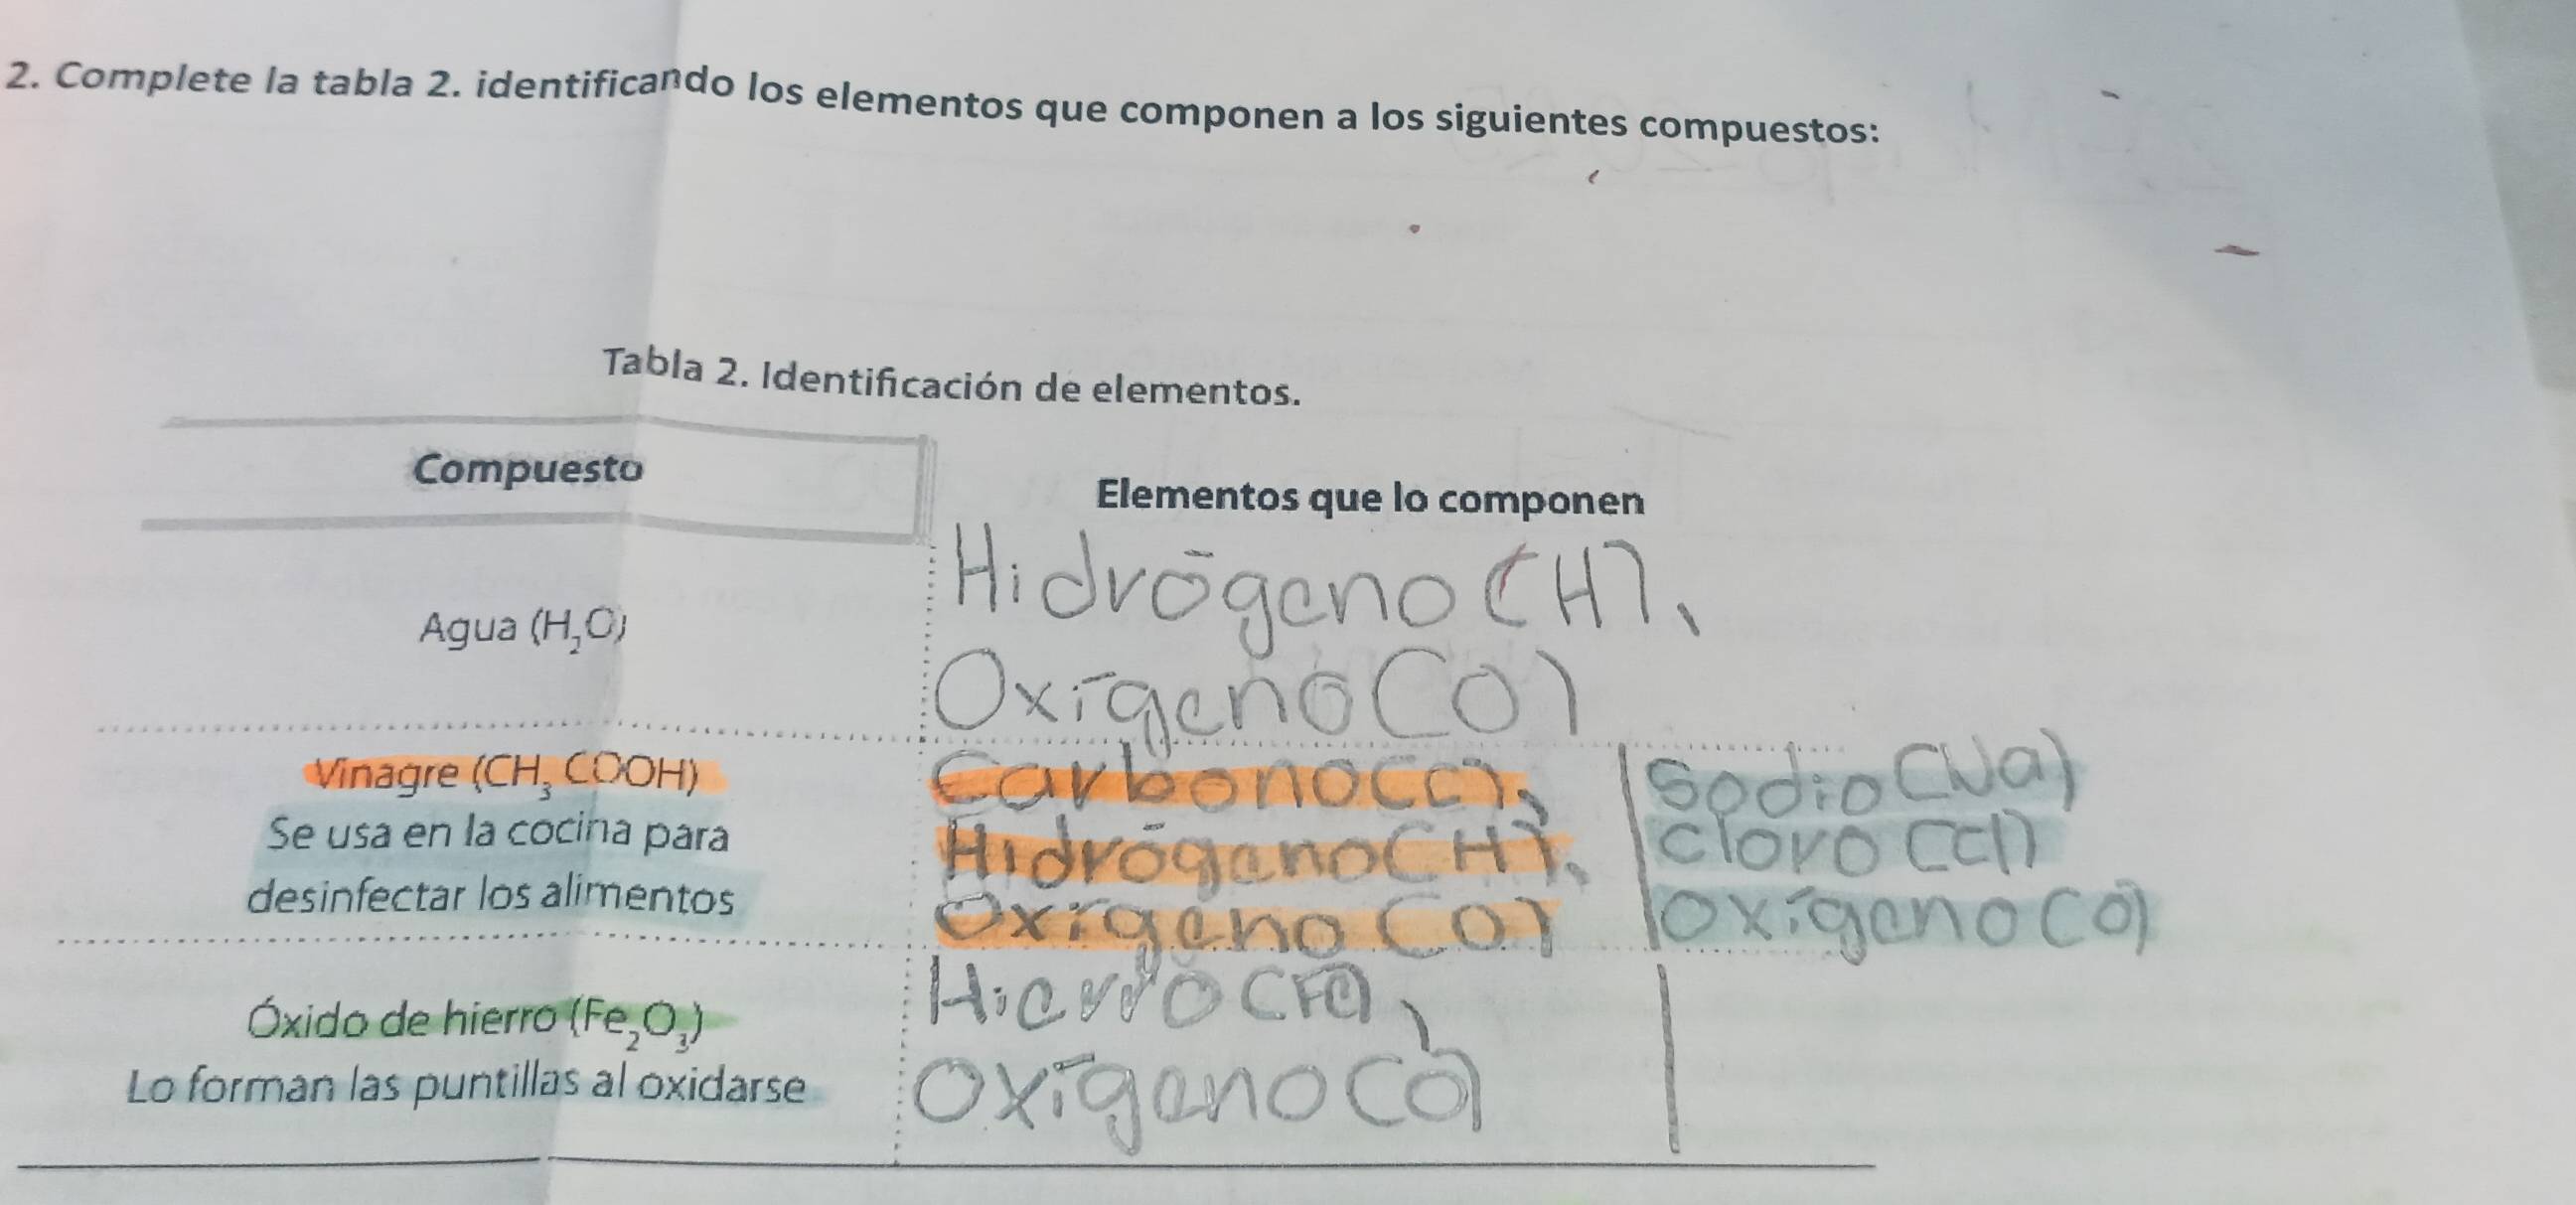 2. Complete la tabla 2. identificando los elementos que componen a los siguientes compuestos:
Tabla 2. Identificación de elementos.
Compuesto
Elementos que lo componen
Agua (H₂O)
Hidrógeno (H),
Oxígeno (O)
Vinagre (CH₃ COOH)
Se usa en la cocina para
desinfectar los alimentos
Carbono (C),
Hidrógeno (H),
Oxígeno (O)
Sodio (Na)
Cloro (Cl)
Oxígeno (O)
Óxido de hierro (Fe₂O₃)
Lo forman las puntillas al oxidarse
Hierro (Fe),
Oxígeno (O)